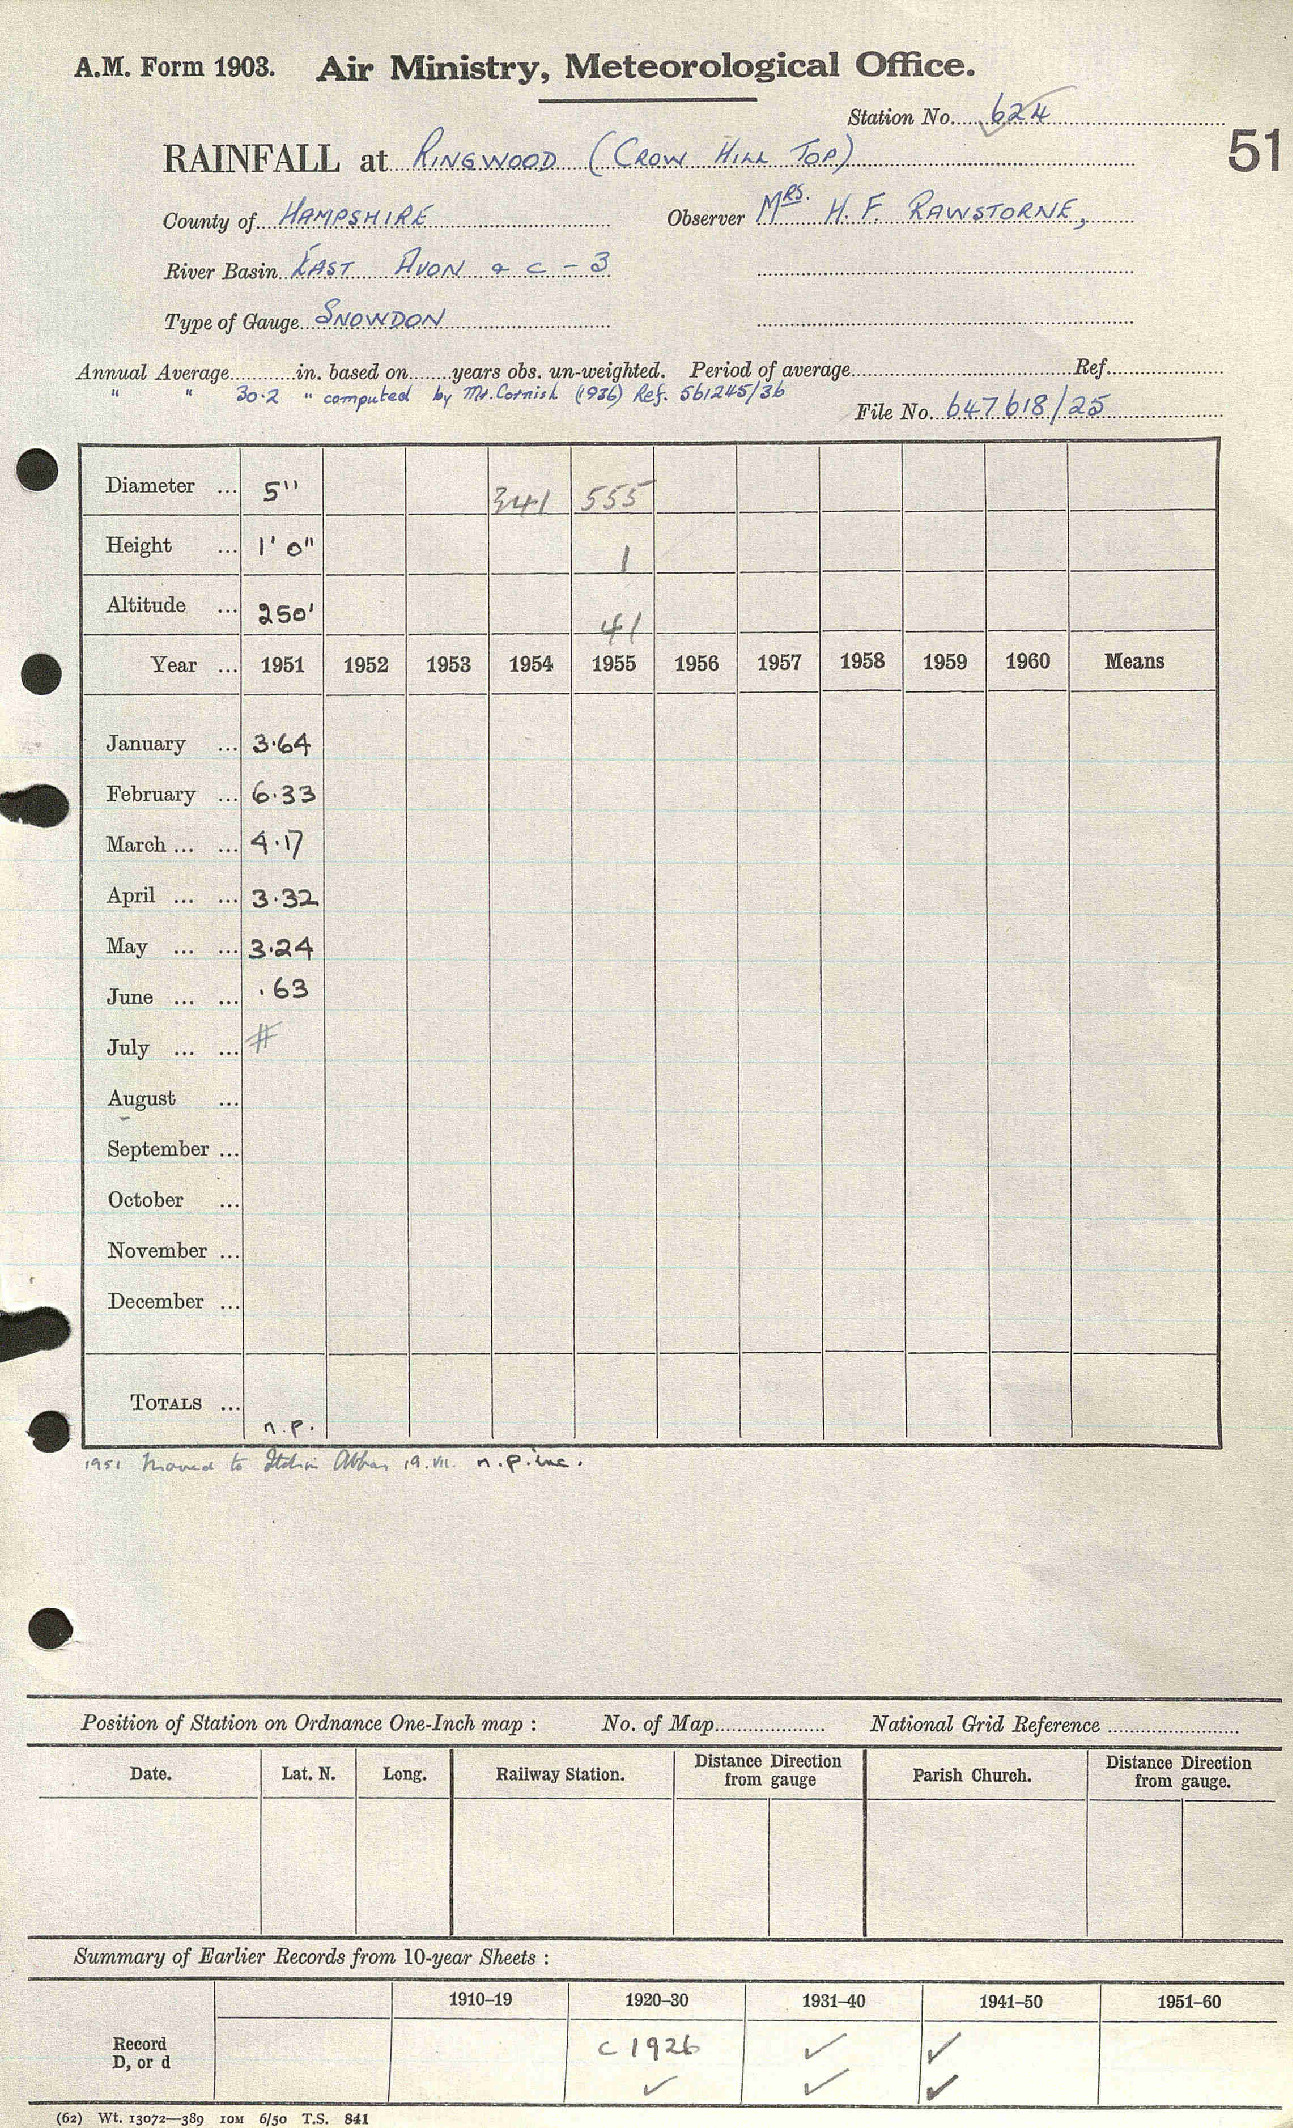 A.M. Form 1903. Air Ministry, Meteorological Office.
Station No. 624
51
RAINFALL at RINGWOOD (CROW HILL TOP)
County of HAMPSHIRE Observer MRS. H. F. RAWSTORNE,
River Basin EAST AVON & C - 3
Type of Gauge SNOWDON
Annual Average in. based on years obs. un-weighted. Period of average Ref.
" " 30.2 " computed by Mr. Cornish (1936) Ref. 561245/36
File No. 647618/25
Diameter ... 5" 341 555
Height ... 1' 0" 1
Altitude ... 250' 41
Year ... 1951 1952 1953 1954 1955 1956 1957 1958 1959 1960 Means
January ... 3.64
February ... 6.33
March ... ... 4.17
April ... ... 3.32
May ... ... 3.24
June ... ... .63
July ... ... #
August ...
September ...
October ...
November ...
December ...
TOTALS ... n.p.
1951 Moved to Itchen Abbas 19.VII. n.p. inc.
Position of Station on Ordnance One-Inch map : No. of Map National Grid Reference
Date. Lat. N. Long. Railway Station. Distance Direction from gauge Parish Church. Distance Direction from gauge.
Summary of Earlier Records from 10-year Sheets :
1910–19 1920–30 1931–40 1941–50 1951–60
Record c 1926 ✓ ✓
D, or d ✓ ✓ ✓
(62) Wt. 13072—389 10M 6/50 T.S. 841